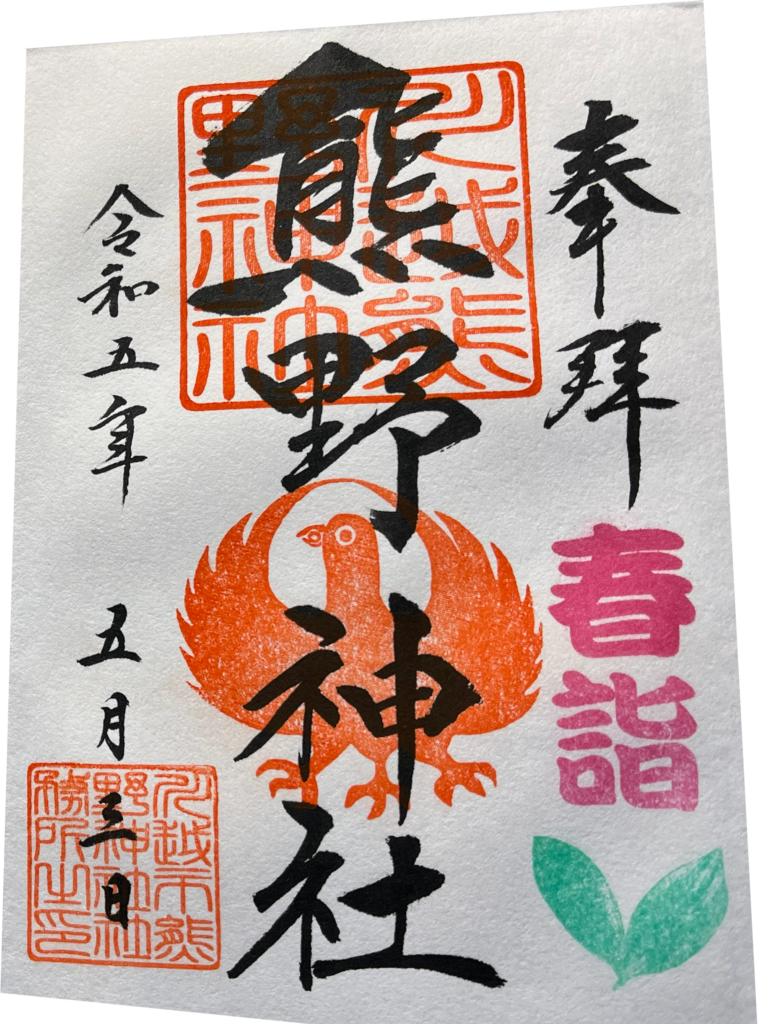 奉拝
春詣
川越熊
野神社
熊野神社
令和五年 五月三日
川越市熊
野神社社
務所之印